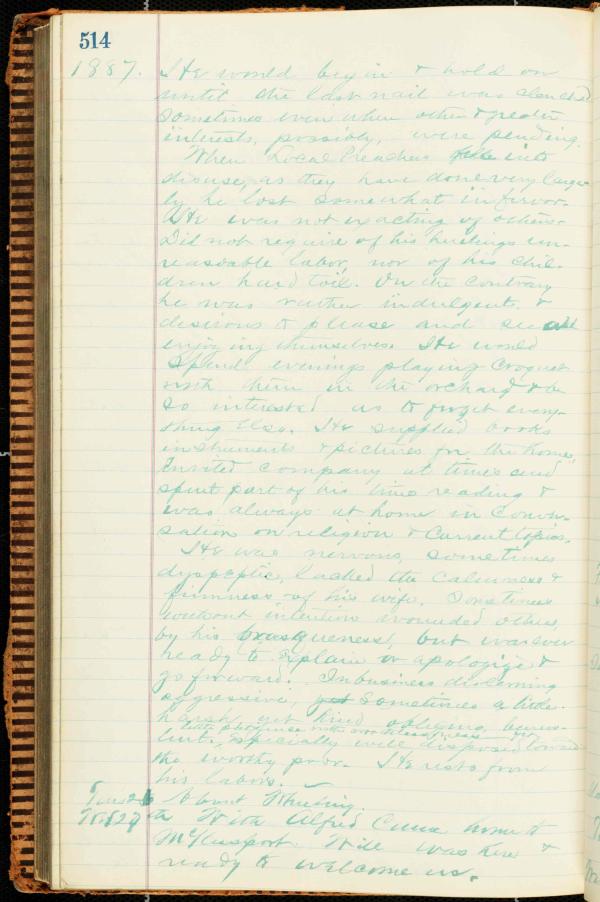 514
1887. He would begin & hold on
until the last nail was clenched
sometimes even when other & greater
interests, possibly, were pending.
When Local Preachers fell into
disuse, as they have done very large-
ly he lost somewhat in fervor.
He was not exacting of others.
Did not require of his hirelings un-
reasonable labor, nor of his chil-
dren hard toil. On the contrary
he was rather indulgent, &
desirous to please and see all
enjoying themselves. He would
spend evenings playing Croquet
with them in the orchard & be
so interested as to forget every-
thing else. He supplied books
instruments & pictures for the home,
Invited company at times and
spent part of his time reading &
was always at home in Conver-
sation on religion & Current topics.
He was nervous, sometimes
dyspeptic, lacked the calmness &
firmness of his wife. Sometimes
without intention wounded others,
by his brusqueness, but was ever
ready to explain or apologize &
go forward. In business discerning
aggressive, yet sometimes a little
harsh, yet kind obliging, benev-
little
lent, especially well disposed toward
the worthy poor. He rests from
his labors.
26 About Wheeling.
27 With Alfred Came home to
McKeesport. Will was here &
ready to welcome us.